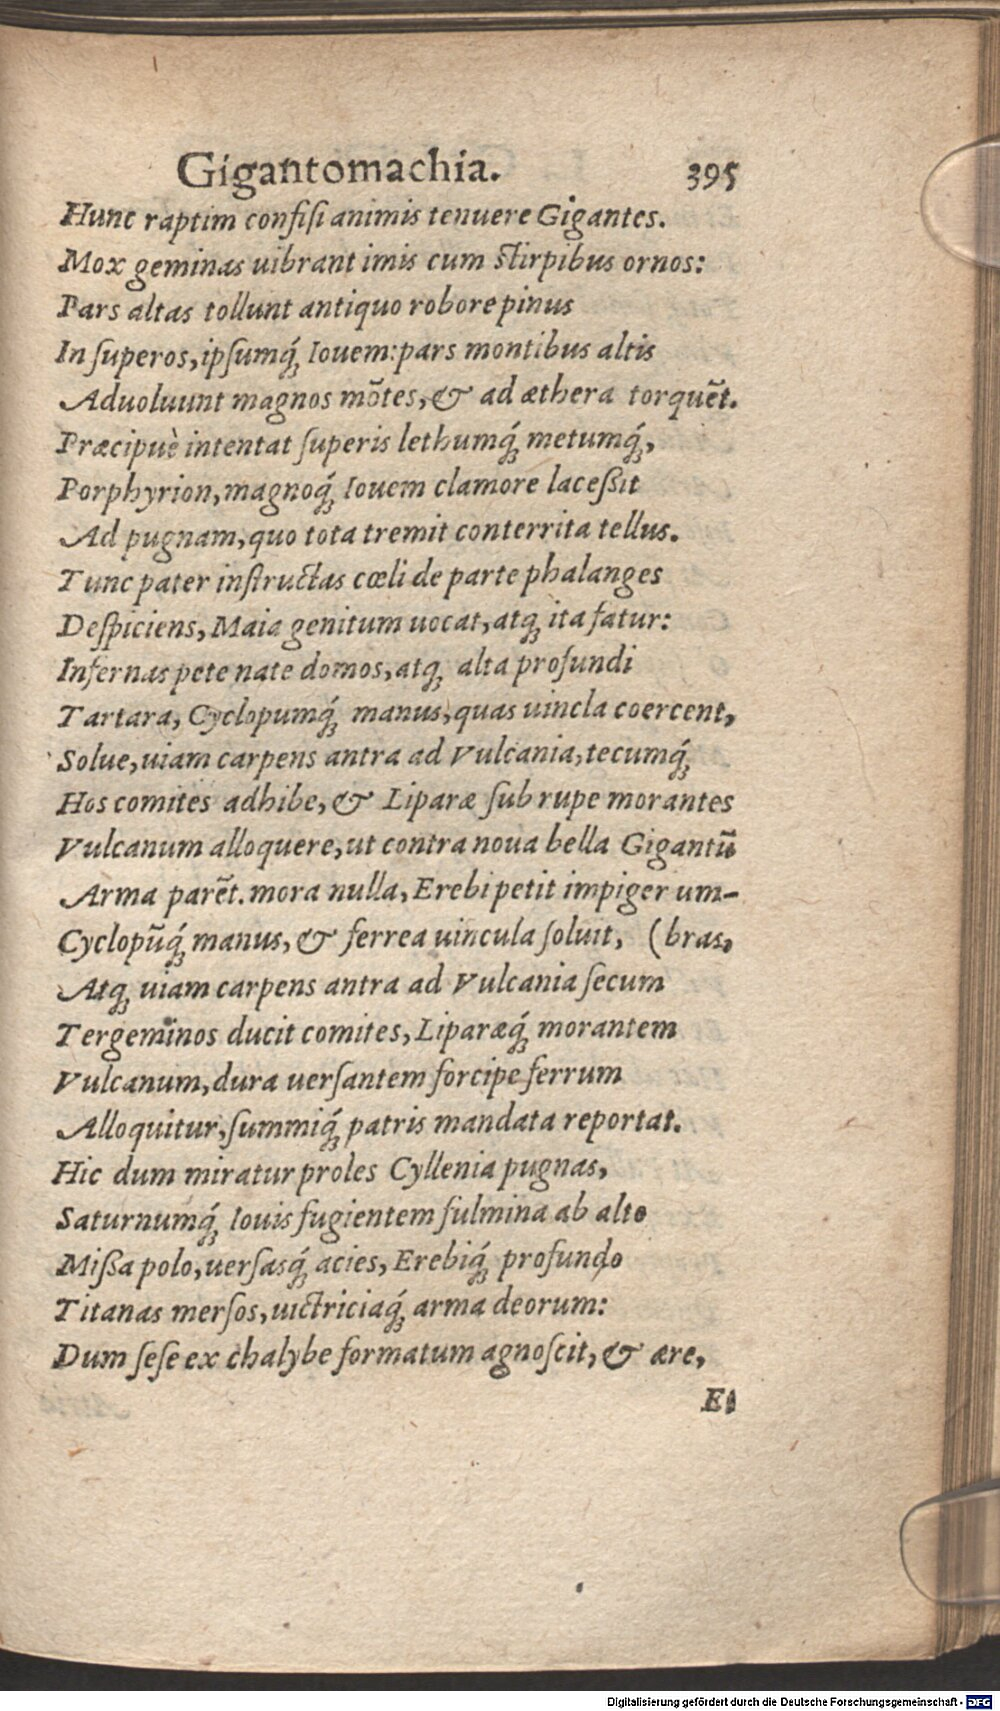 Gigantomachia. 395
Hunc raptim confisi animis tenuere Gigantes.
Mox geminas uibrant imis cum stirpibus ornos:
Pars altas tollunt antiquo robore pinus
In superos, ipsumq́ Iouem: pars montibus altis
Aduoluunt magnos mōtes, & ad æthera torquēt.
Præcipuè intentat superis lethumq́ metumq́,
Porphyrion, magnoq́ Iouem clamore laceßit
Ad pugnam, quo tota tremit conterrita tellus.
Tunc pater instructas cœli de parte phalanges
Despiciens, Maia genitum uocat, atq; ita fatur:
Infernas pete nate domos, atq; alta profundi
Tartara, Cyclopumq́ manus, quas uincla coercent,
Solue, uiam carpens antra ad Vulcania, tecumq́
Hos comites adhibe, & Liparæ sub rupe morantes
Vulcanum alloquere, ut contra noua bella Gigantū
Arma parēt. mora nulla, Erebi petit impiger um-
Cyclopūq́ manus, & ferrea uincula soluit, (bras,
Atq; uiam carpens antra ad Vulcania secum
Tergeminos ducit comites, Liparæq́ morantem
Vulcanum, dura uersantem forcipe ferrum
Alloquitur, summiq́ patris mandata reportat.
Hic dum miratur proles Cyllenia pugnas,
Saturnumq́ Iouis fugientem fulmina ab alto
Mißa polo, uersasq́ acies, Erebiq́ profundo
Titanas mersos, uictriciaq́ arma deorum:
Dum sese ex chalybe formatum agnoscit, & ære,
Et
Digitalisierung gefördert durch die Deutsche Forschungsgemeinschaft - DFG